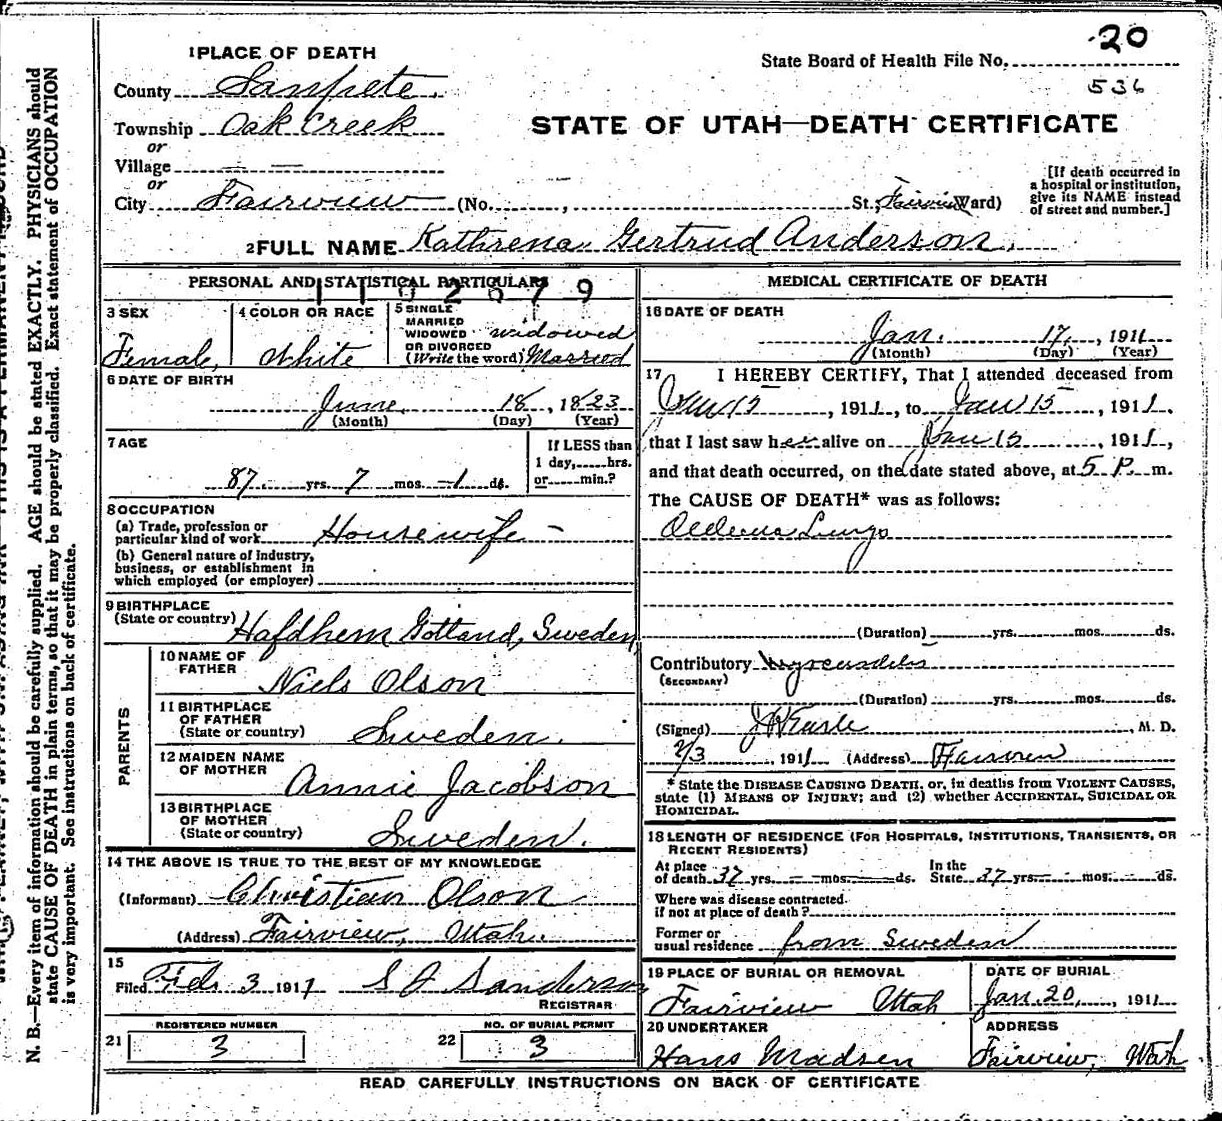 20
State Board of Health File No.
536
1 PLACE OF DEATH
County Sanpete.
Township Oak Creek
or
Village
or
City Fairview (No. , St.; Fairview Ward)
STATE OF UTAH—DEATH CERTIFICATE
[If death occurred in
a hospital or institution,
give its NAME instead
of street and number.]
2 FULL NAME Kathrena Gertrud Anderson.
PERSONAL AND STATISTICAL PARTICULARS
3 SEX
Female,
4 COLOR OR RACE
White
5 SINGLE
MARRIED
WIDOWED
OR DIVORCED
(Write the word)
widowed
Married
6 DATE OF BIRTH
June 18, 1823
(Month) (Day) (Year)
7 AGE
87 yrs. 7 mos. 1 ds.
If LESS than
1 day,......hrs.
or......min.?
8 OCCUPATION
(a) Trade, profession or
particular kind of work Housewife
(b) General nature of industry,
business, or establishment in
which employed (or employer)
9 BIRTHPLACE
(State or country) Hafdhem Gottland, Sweden,
PARENTS
10 NAME OF
FATHER
Niels Olson
11 BIRTHPLACE
OF FATHER
(State or country) Sweden.
12 MAIDEN NAME
OF MOTHER
Annie Jacobson
13 BIRTHPLACE
OF MOTHER
(State or country) Sweden.
14 THE ABOVE IS TRUE TO THE BEST OF MY KNOWLEDGE
(Informant) Christian Olson
(Address) Fairview, Utah.
15
Filed Feb 3 1911 Sanderson
REGISTRAR
21 REGISTERED NUMBER
3
22 NO. OF BURIAL PERMIT
3
MEDICAL CERTIFICATE OF DEATH
16 DATE OF DEATH
Jan. 17, 1911
(Month) (Day) (Year)
17 I HEREBY CERTIFY, That I attended deceased from
Jan 15, 1911, to Jan 15, 1911,
that I last saw her alive on Jan 15, 1911,
and that death occurred, on the date stated above, at 5 P. m.
The CAUSE OF DEATH* was as follows:
Lungs
(Duration) yrs. mos. ds.
Contributory
(SECONDARY)
(Duration) yrs. mos. ds.
(Signed) M. D.
2/3 1911 (Address) Fairview
* State the DISEASE CAUSING DEATH, or, in deaths from VIOLENT CAUSES,
state (1) MEANS OF INJURY; and (2) whether ACCIDENTAL, SUICIDAL OR
HOMICIDAL.
18 LENGTH OF RESIDENCE (FOR HOSPITALS, INSTITUTIONS, TRANSIENTS, OR
RECENT RESIDENTS)
At place
of death 37 yrs. mos. ds.
In the
State 37 yrs. mos. ds.
Where was disease contracted
if not at place of death?
Former or
usual residence from Sweden
19 PLACE OF BURIAL OR REMOVAL
Fairview Utah
DATE OF BURIAL
Jan. 20, 1911
20 UNDERTAKER
Hans Madsen
ADDRESS
Fairview, Utah
READ CAREFULLY INSTRUCTIONS ON BACK OF CERTIFICATE
N. B.—Every item of information should be carefully supplied. AGE should be stated EXACTLY. PHYSICIANS should
state CAUSE OF DEATH in plain terms, so that it may be properly classified. Exact statement of OCCUPATION
is very important. See instructions on back of certificate.